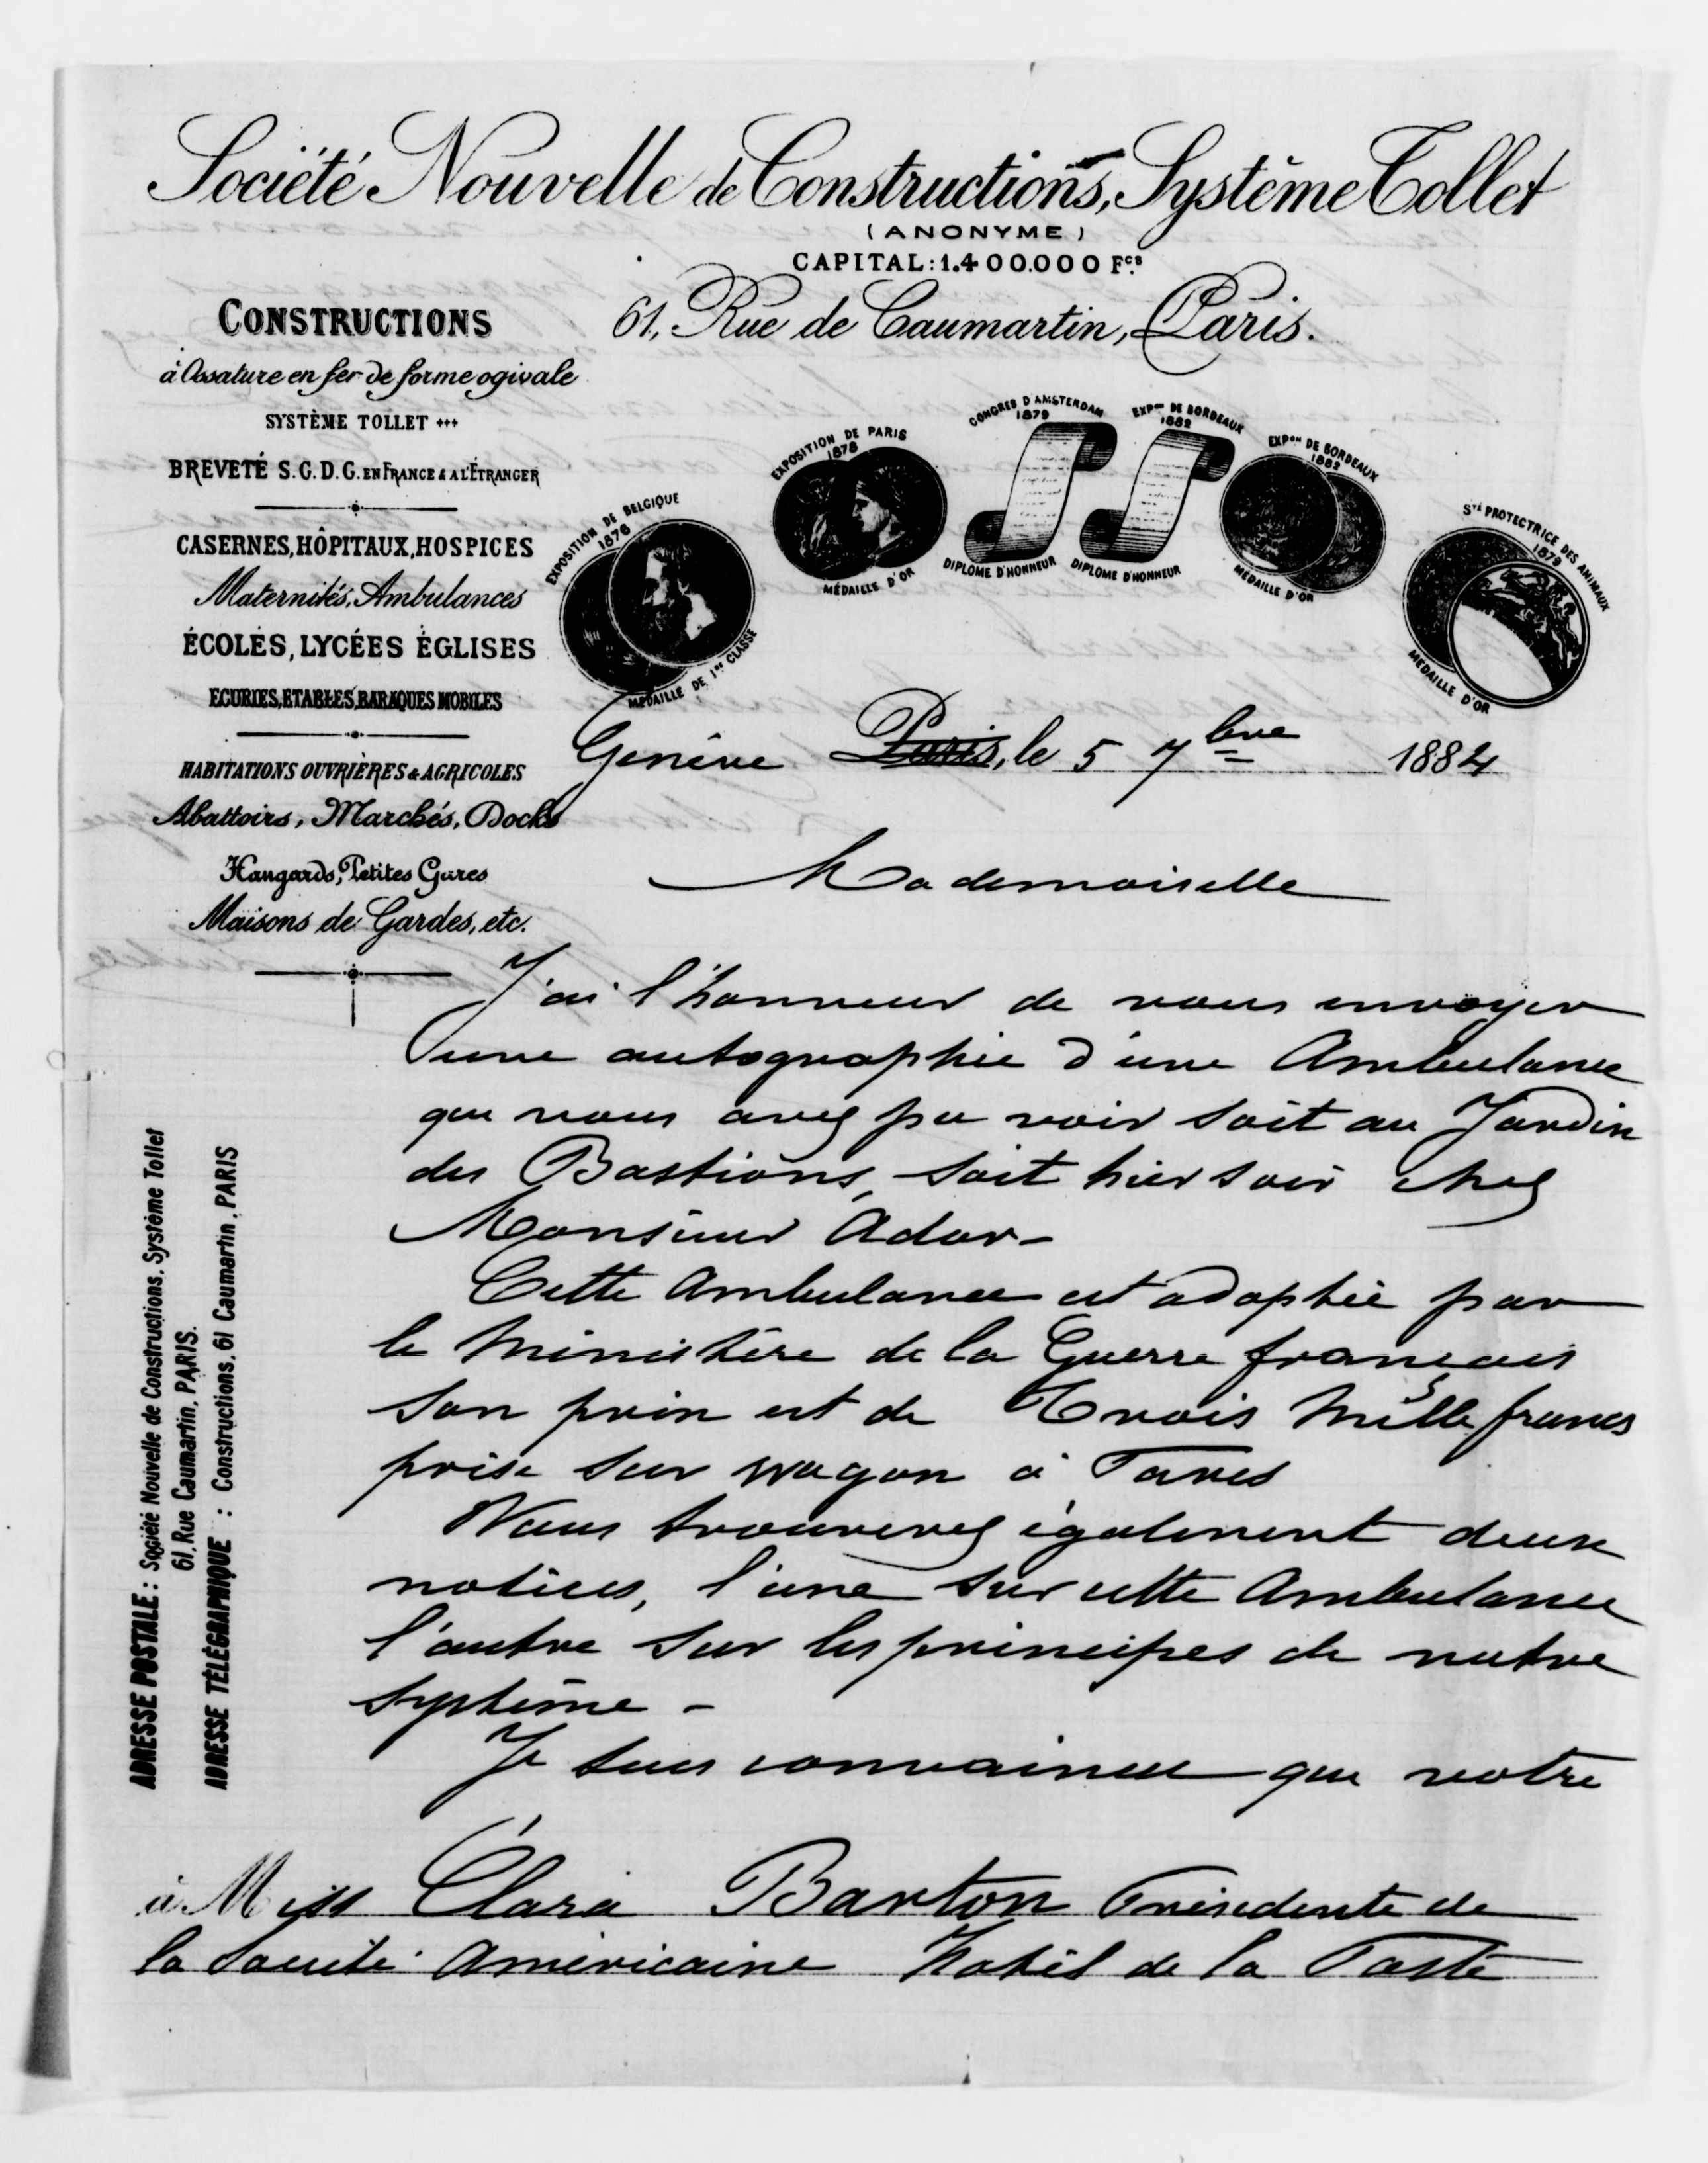 Société Nouvelle de Constructions, Système Tollet
(ANONYME)
CAPITAL: 1.400.000 Fcs
61, Rue de Caumartin, Paris.
CONSTRUCTIONS
à Ossature en fer de forme ogivale
SYSTÈME TOLLET
BREVETÉ S.G.D.G. EN FRANCE & A L'ÉTRANGER
CASERNES, HÔPITAUX, HOSPICES
Maternités, Ambulances
ÉCOLES, LYCÉES ÉGLISES
ECURIES, ETABLES, BARAQUES MOBILES
HABITATIONS OUVRIÈRES & AGRICOLES
Abattoirs, Marchés, Docks
Hangards, Petites Gares
Maisons de Gardes, etc.
EXPOSITION DE BELGIQUE
1876
MÉDAILLE DE 1re CLASSE
EXPOSITION DE PARIS
1878
MÉDAILLE D'OR
CONGRES D'AMSTERDAM
1879
DIPLOME D'HONNEUR
EXPon DE BORDEAUX
1882
DIPLOME D'HONNEUR
EXPon DE BORDEAUX
1882
MÉDAILLE D'OR
Sté PROTECTRICE DES ANIMAUX
1879
MÉDAILLE D'OR
Genève Paris, le 5 7bre 1884
Mademoiselle
J'ai l'honneur de vous envoyer
une autographie d'une Ambulance
que vous avez pu voir soit au Jardin
des Bastions, soit hier soir chez
Monsieur Ador-
Cette Ambulance est adoptée par
le Ministère de la Guerre français
son prix est de Trois Mille francs
prise sur wagon à Paris
Vous trouverez également deux
notices, l'une sur cette Ambulance
l'autre sur les principes de notre
système -
Je suis convaincu que votre
à Miss Clara Barton Présidente de
la Société Américaine Hotel de la Poste
ADRESSE POSTALE: Société Nouvelle de Constructions, Système Tollet
61, Rue Caumartin, PARIS.
ADRESSE TÉLÉGRAPHIQUE : Constructions, 61 Caumartin, PARIS